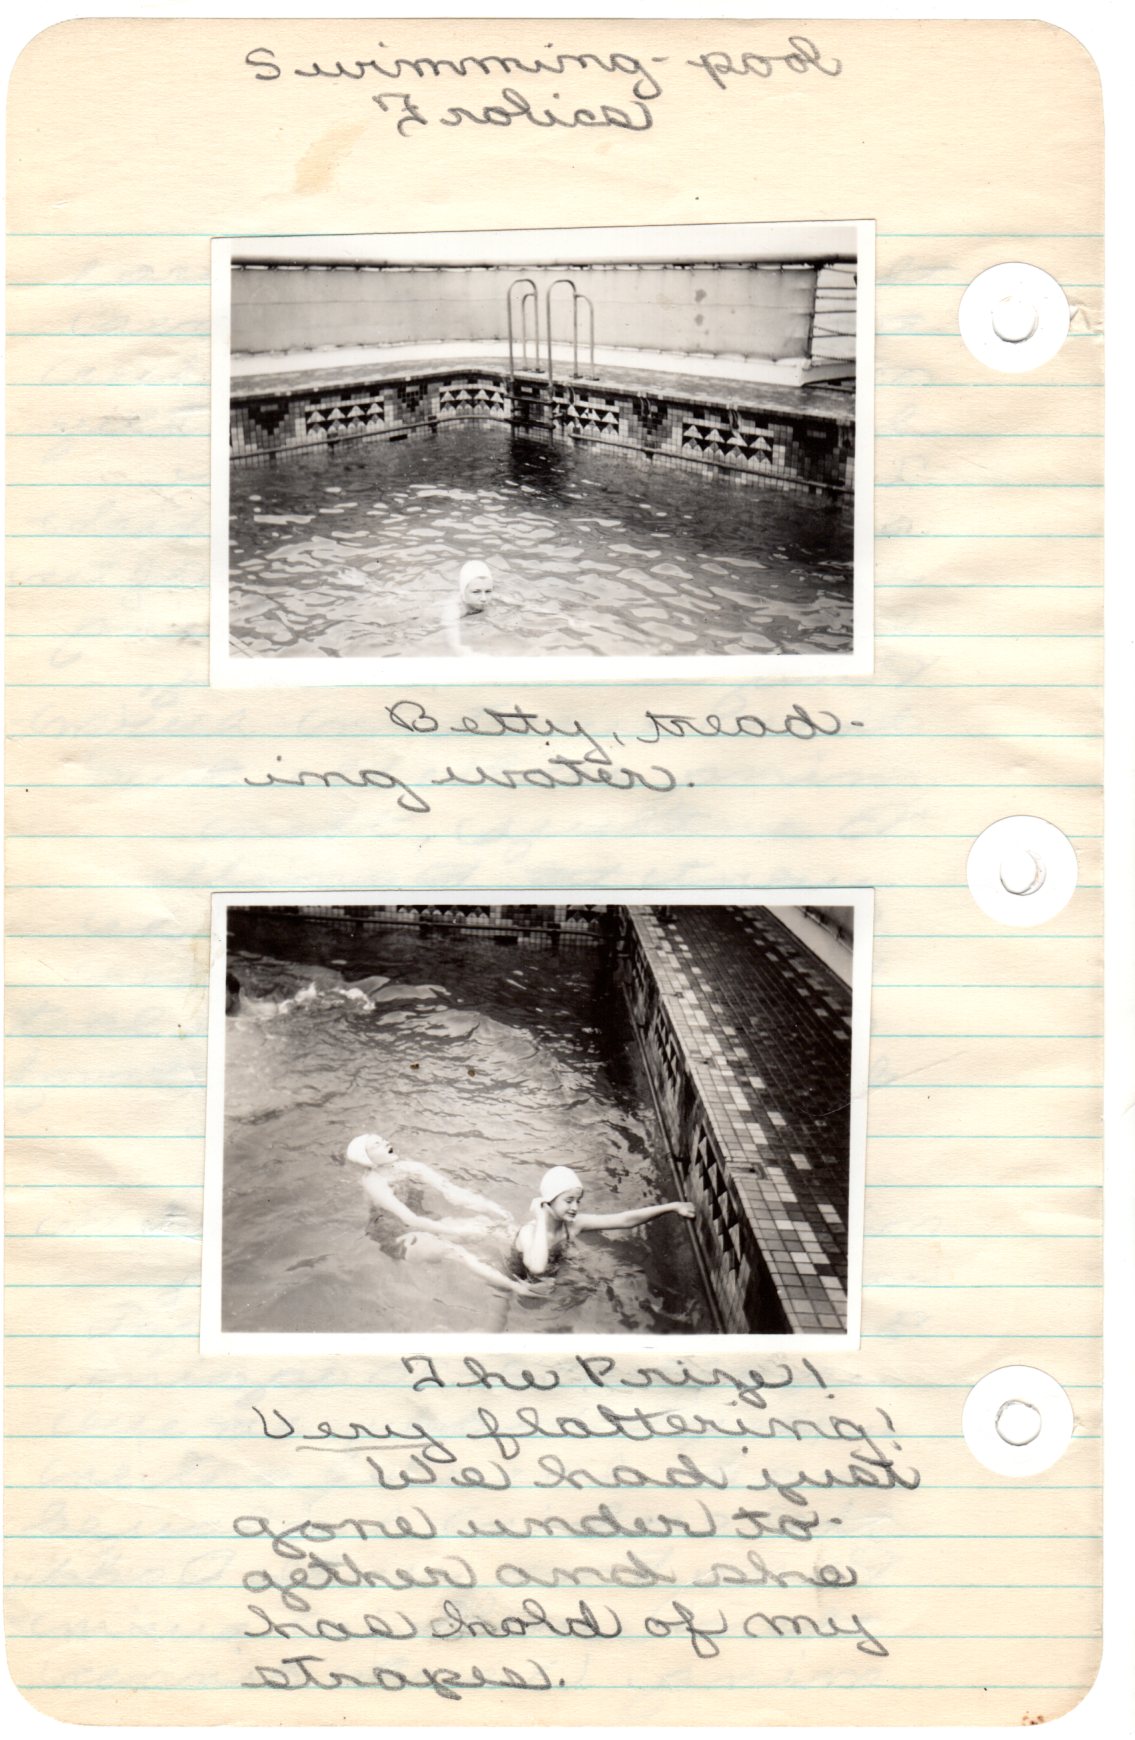 Swimming-pool
Frolics
Betty, tread-
ing water.
The Prize!
Very flattering!
We had just
gone under to-
gether and she
has hold of my
straps.